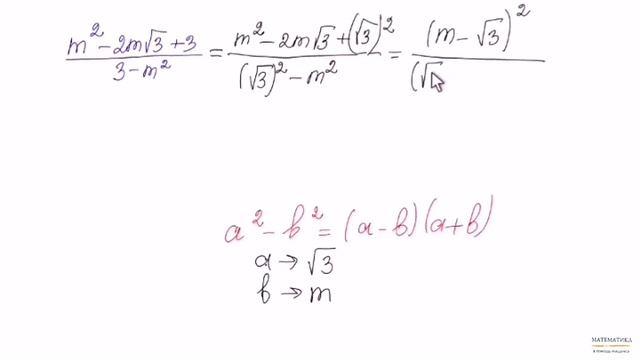 (m² - 2m√3 + 3)/(3 - m²) = (m² - 2m√3 + (√3)²)/((√3)² - m²) = (m - √3)²/(√
a² - b² = (a - b)(a + b)
a → √3
b → m
МАТЕМАТИКА